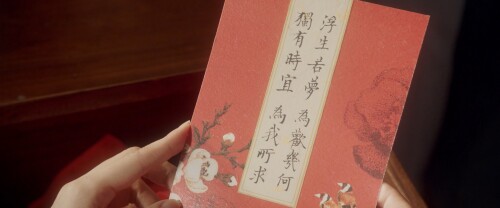 浮生若夢 為歡幾何
獨有時宜 為我所求